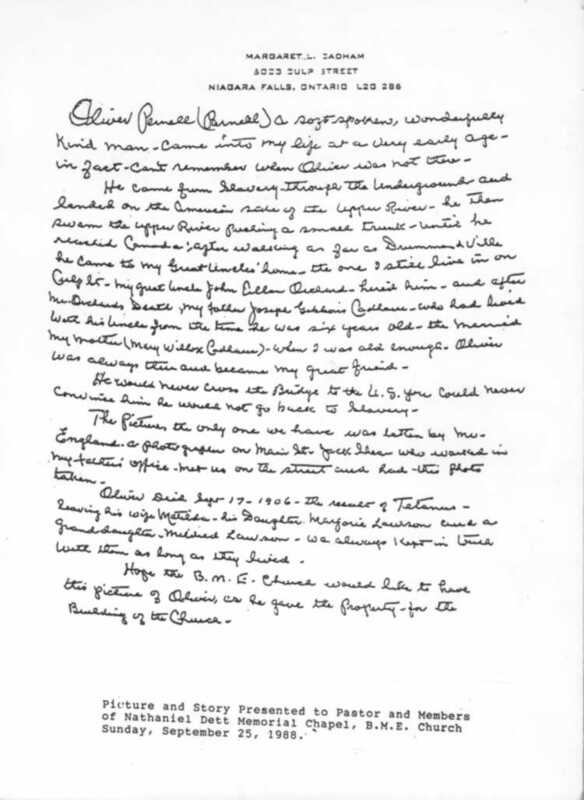 MARGARET L. CADHAM
CULP STREET
NIAGARA FALLS, ONTARIO L2G 2B6
Oliver Pernell (Parnell) a soft-spoken, wonderfully
kind man - came into my life at a very early age -
in fact - can't remember when Oliver was not there -
He came from slavery - through the Underground and
landed on the American side of the Upper River - he then
swam the Upper River pushing a small trunk - until he
reached Canada; after walking as far as Drummondville
he came to my Great Uncles' home - the one I still live in on
Culp St - my great Uncle John Orchard - hired him - and after
Mr Orchards Death, my father Joseph Gibbons Cadham - who had lived
with his Uncle from the time he was six years old - the married
my mother (Mary Willox Cadham) - when I was old enough - Oliver
was always there and became my great friend -
He would never cross the Bridge to the U.S. you could never
convince him he would not go back to slavery -
The Picture, the only one we have was taken by Mr
England - a photographer on Main St - Jack Shea who worked in
my fathers' office - met us on the street and had this photo
taken -
Oliver Died Sept 17 - 1906 - the result of Tetanus -
leaving his wife Matilda - his Daughter Marjorie Lawson and a
Granddaughter - Mildred Lawson - we always kept in touch
with them as long as they lived -
Hope the B.M.E. Church would like to have
this picture of Oliver, as he gave the Property - for the
Building of the Church -
Picture and Story Presented to Pastor and Members
of Nathaniel Dett Memorial Chapel, B.M.E. Church
Sunday, September 25, 1988.